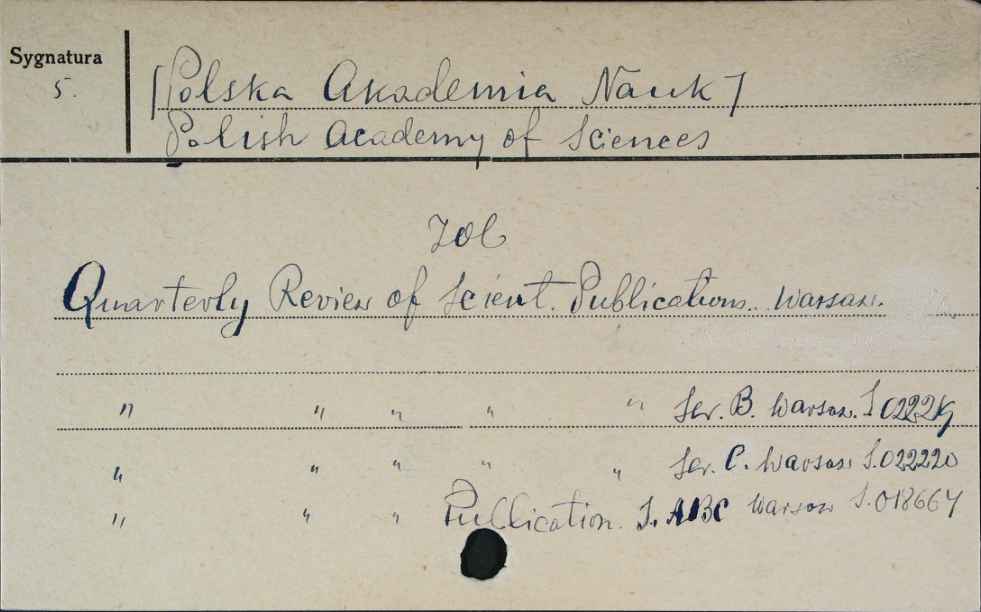 Sygnatura
5.
[Polska Akademia Nauk]
Polish Academy of Sciences
Zob
Quarterly Review of Scient. Publications. Warsaw.
" " " " " Ser. B. Warsaw. S.
" " " " " Ser. C. Warsaw S.022220
" " " Publication. S. ABC Warsaw S.018667